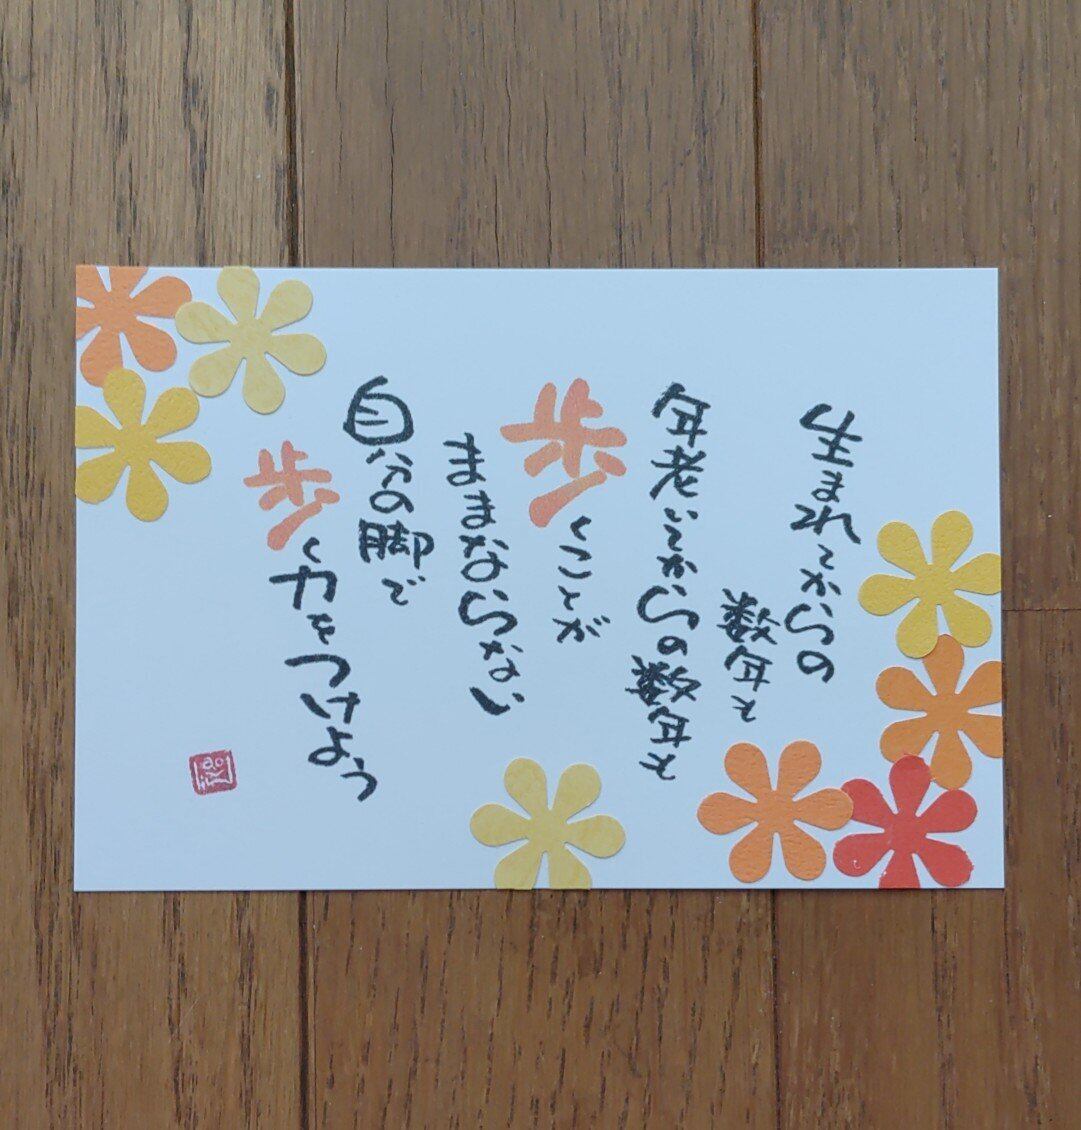 生まれてからの
数年と
年老いてからの数年と
歩くことが
ままならない
自分の脚で
歩く力をつけよう